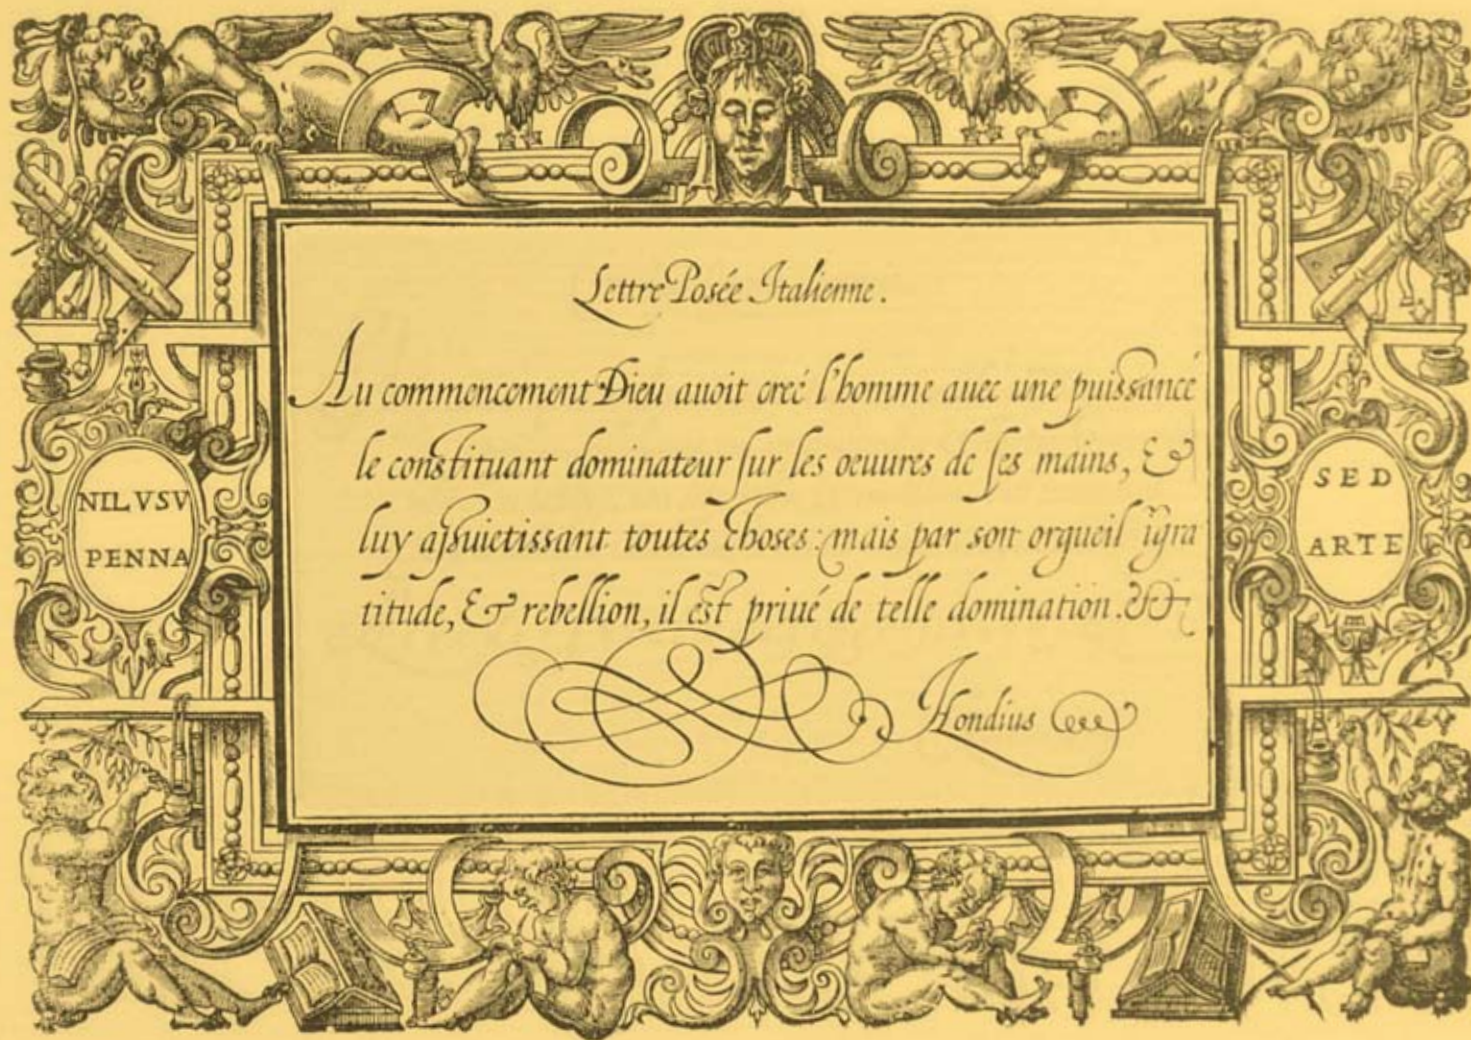 Lettre Posée Italienne.
Au commencement Dieu auoit creé l'homme auec une puissance
le constituant dominateur sur les oeuures de ses mains, &
luy assuietissant toutes choses: mais par son orgueil igra
titude, & rebellion, il est priué de telle domination. &
Hondius
NIL VSV
PENNA
SED
ARTE